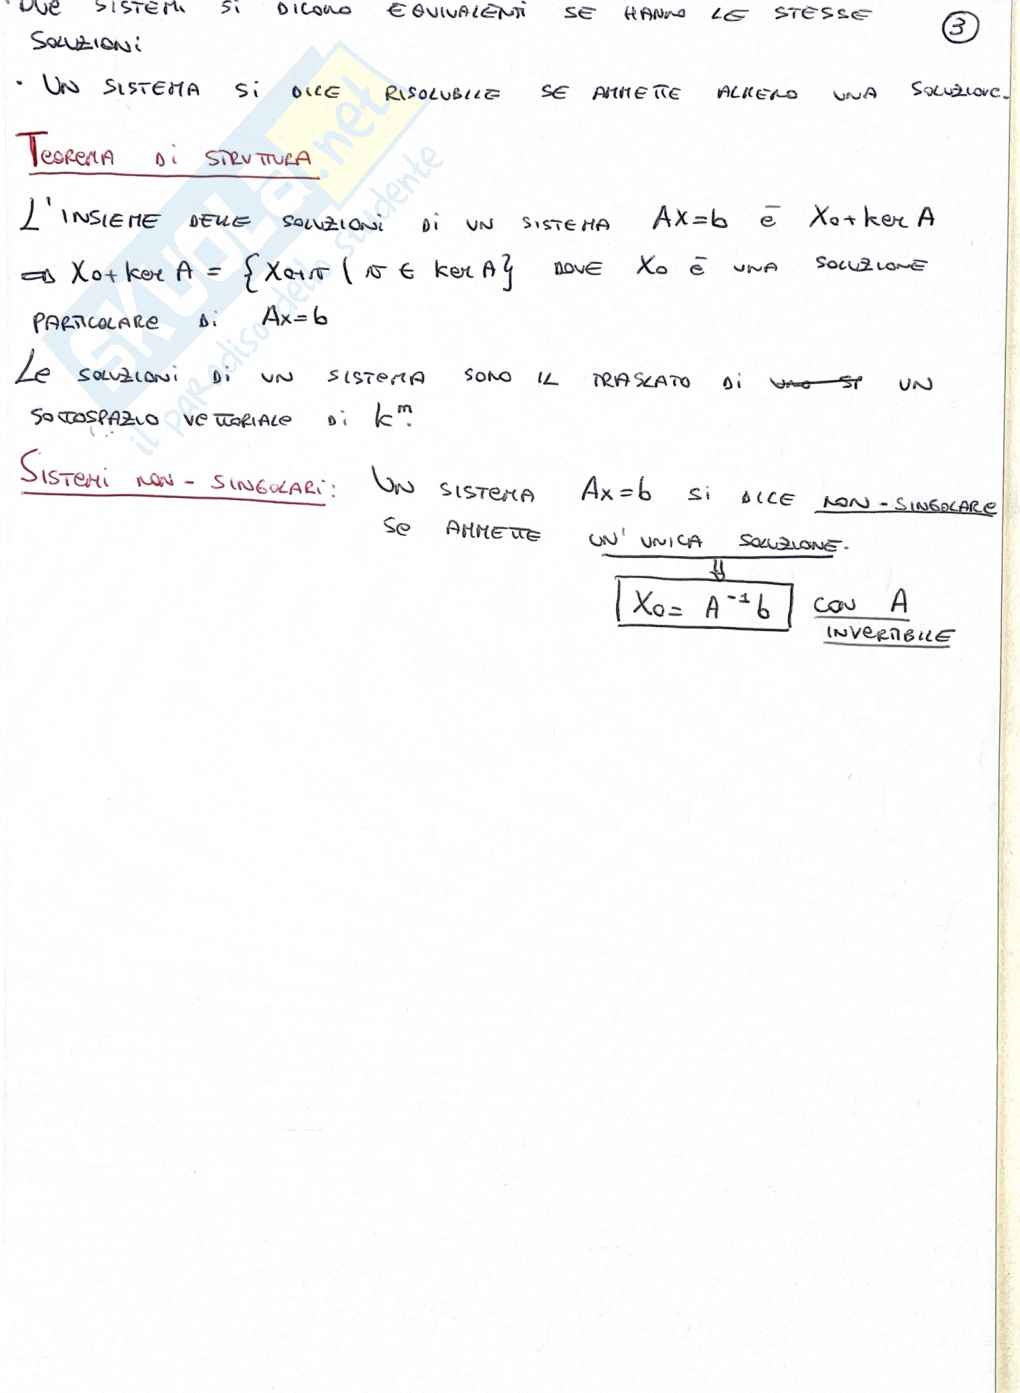 • DUE SISTEMI SI DICONO EQUIVALENTI SE HANNO LE STESSE
SOLUZIONI
3
• UN SISTEMA SI DICE RISOLUBILE SE AMMETTE ALMENO UNA SOLUZIONE.
TEOREMA DI STRUTTURA
L'INSIEME DELLE SOLUZIONI DI UN SISTEMA AX=b è X₀+ker A
⇒ X₀+ker A = {X₀+v | v ∈ ker A} DOVE X₀ è UNA SOLUZIONE
PARTICOLARE DI AX=b
LE SOLUZIONI DI UN SISTEMA SONO IL TRASLATO DI UN
SOTTOSPAZIO VETTORIALE DI kⁿ.
SISTEMI NON-SINGOLARI: UN SISTEMA AX=b SI DICE NON-SINGOLARE
SE AMMETTE UN'UNICA SOLUZIONE.
⇓
X₀= A⁻¹b CON A
INVERTIBILE
SKUOLA.net
il paradiso dello studente